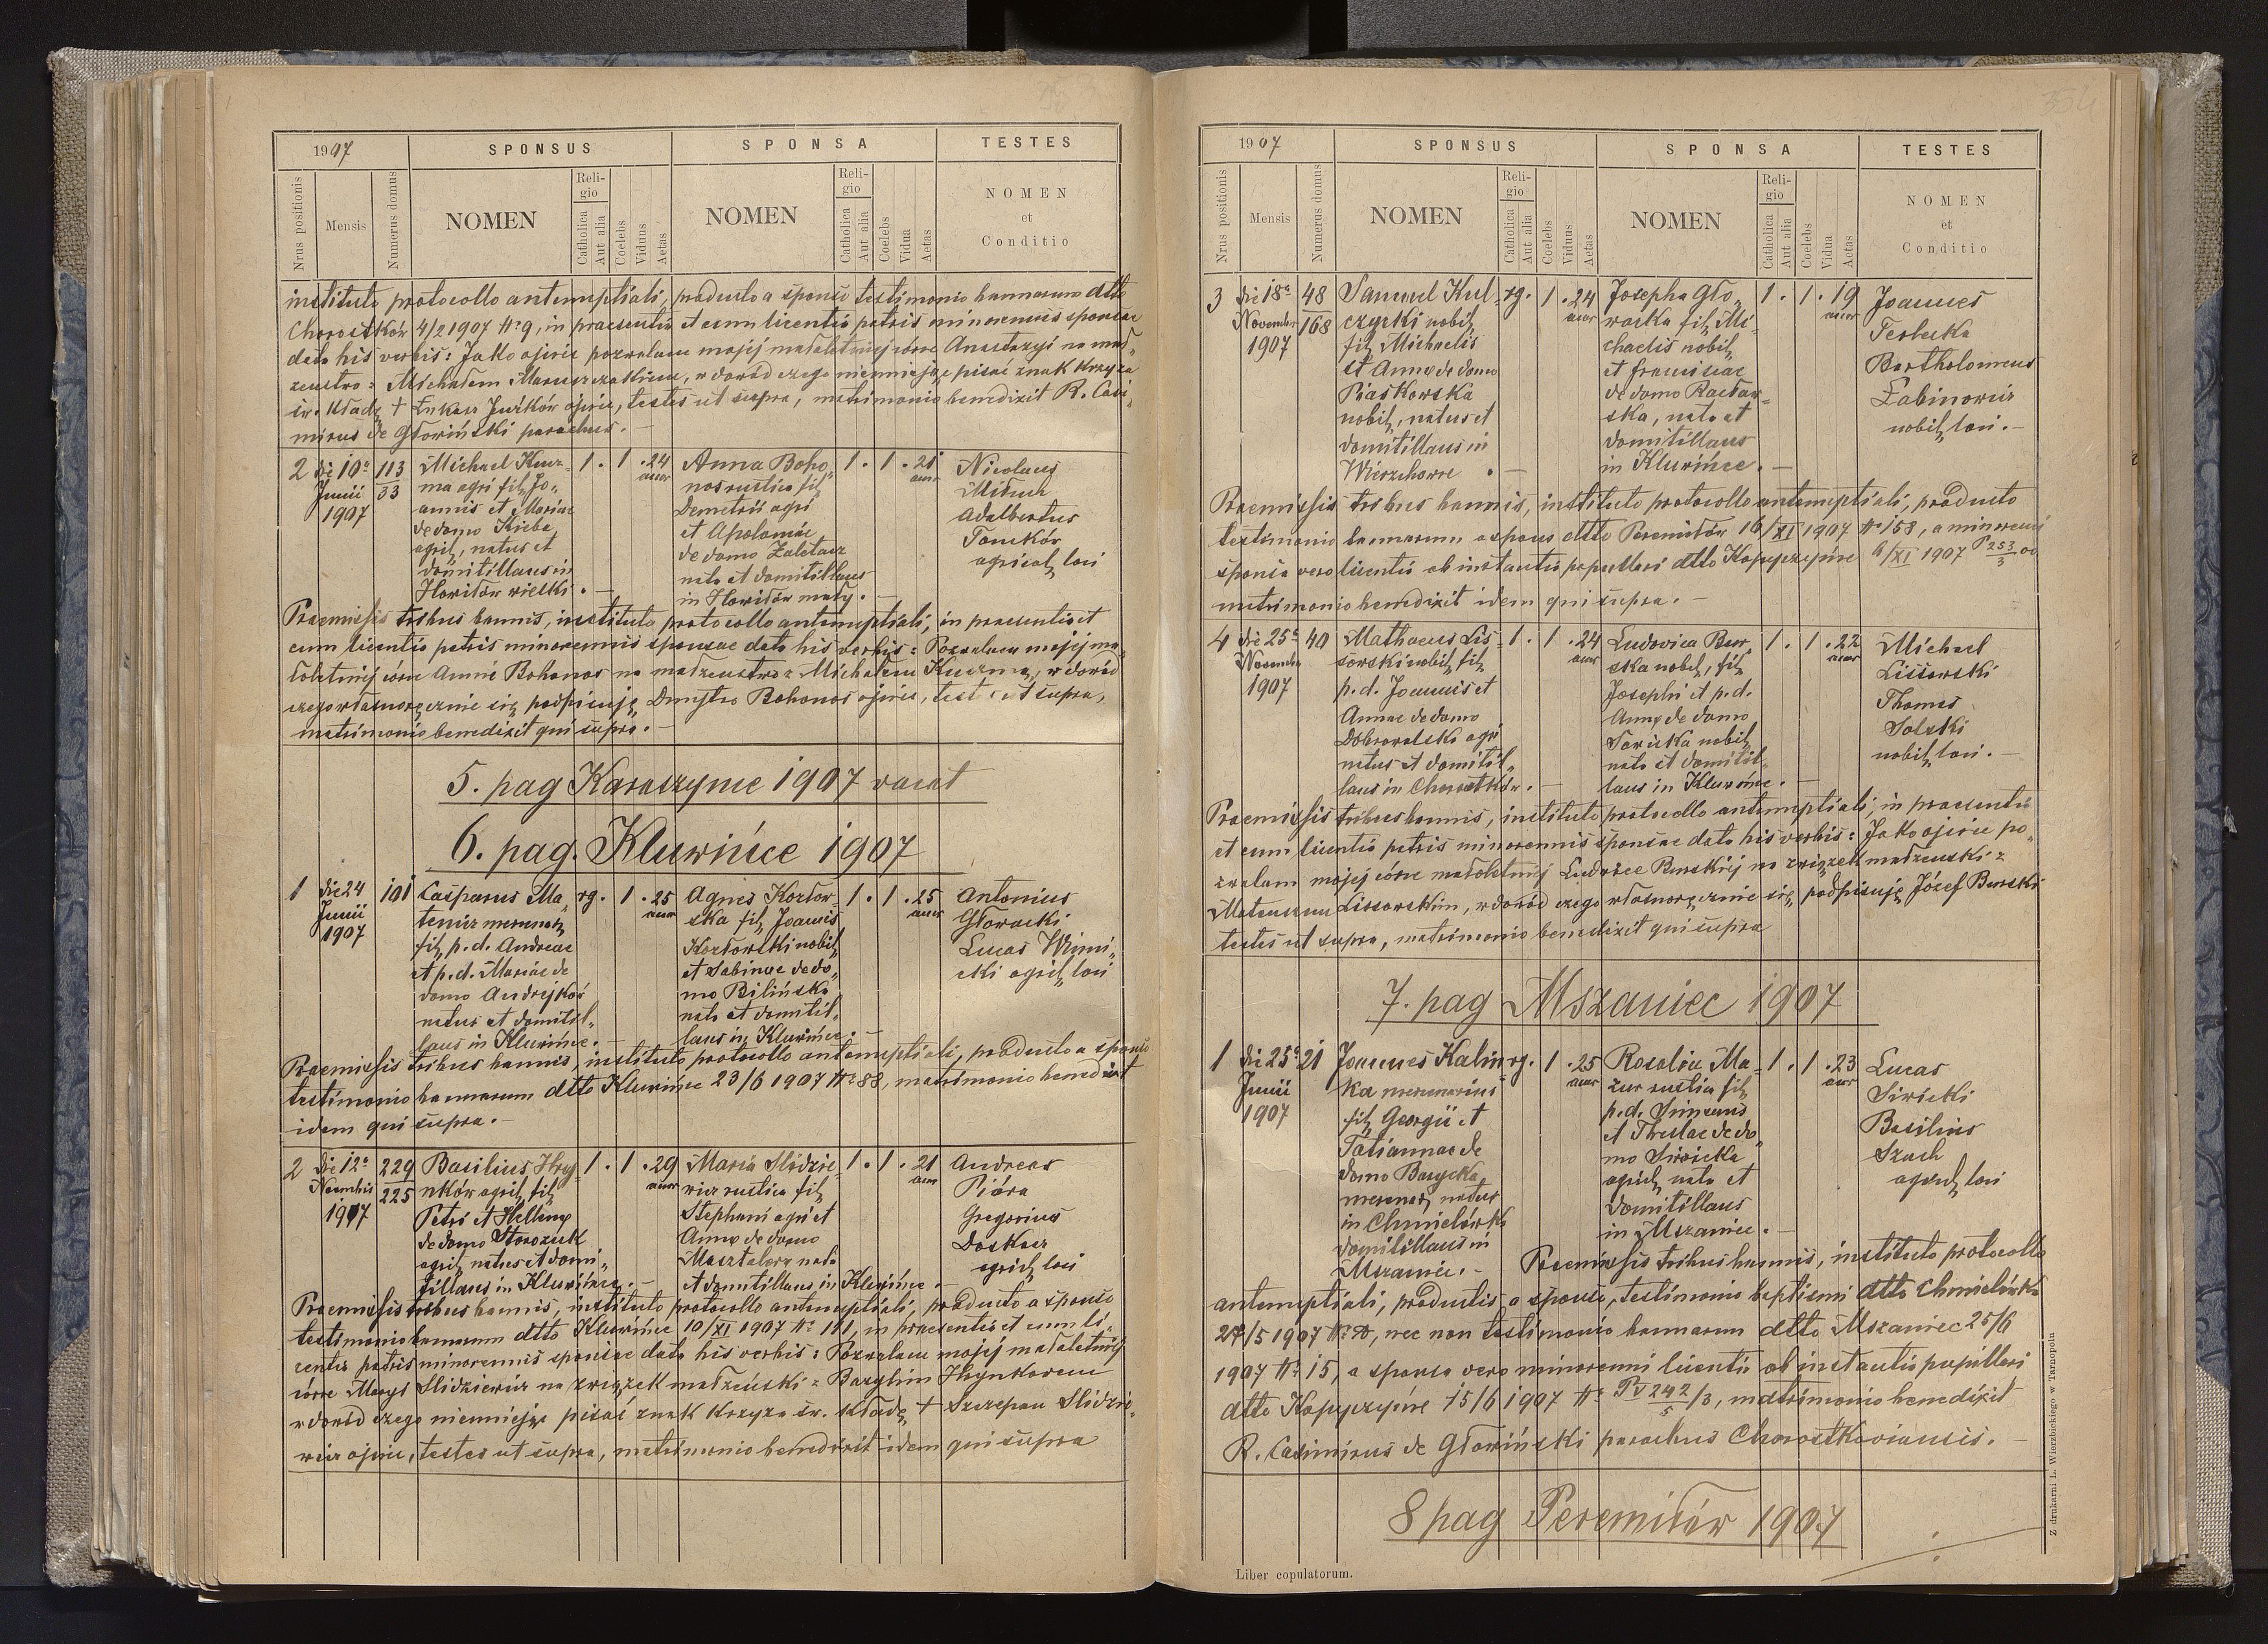 1907
SPONSUS
SPONSA
TESTES
Nrus positionis
Mensis
Numerus domus
NOMEN
Religio
Catholica
Aut alia
Coelebs
Viduus
Aetas
NOMEN
Religio
Catholica
Aut alia
Coelebs
Vidua
Aetas
NOMEN
et
Conditio
instituto protocollo antenuptiali, producto a sponso testimonio bannorum dtto
Chorostków 4/2 1907 № 9, in praesentia et cum licentia patris minorennis sponsae
data his verbis: Jako ojciec pozwalam mojej małoletniej córce Anastazyi na mał„
zenstwo z Michałem Maruszczakiem, w dowód czego nieumiejąc pisać znak krzyża
św. kładę † Łukasz Juźków ojciec, testes ut supra, matrimonio benedixit R. Casi„
mirus de Głowiński parochus.
2 die 10ª Junii 1907
113/33
Michael Kuz„
ma agri fil, Jo„
annis et Mariae
de domo Kieba
agric, natus et
domitillans in
Howiłów wielki.
1 . 1 . 24 anor
Anna Boho„
nos rustica fil,
Demetrii agri
et Apoloniae
de domo Zaletacz
nata et domitillans
in Howiłów mały.
1 . 1 . 21 anor
Nicolaus
Misuch
Adalbertus
Tomków
agricol, loci
Praemissis tribus bannis, instituto protocollo antenuptiali, in praesentia et
cum licentia patris minorennis sponsae data his verbis: Pozwalam mojej ma„
łoletniej córce Annie Bohonos na małzenstwo z Michałem Kuzmą, w dowód
czego własnoręcznie się podpisuję, Dmytro Bohonos ojciec, testes ut supra,
matrimonio benedixit qui supra.
5. pag Karaszynce 1907 vacat
6. pag. Kluwińce 1907
1 die 24 Junii 1907
101
Casparus Ma„
tenicz mercenar,
fil, p. d. Andreae
et p. d. Mariae de
domo Andrejków
natus et domitil„
lans in Kluwińce.
rg. 1 . 25 anor
Agnes Kozłow„
ska fil, Joannis
Kozłowski nobil,
et Sabinae de do„
mo Bilińska
nata et domitil„
lans in Kluwińce.
1 . 1 . 25 anor
Antonius
Głowacki
Lucas Winni„
cki agric, loci
Praemissis tribus bannis, instituto protocollo antenuptiali, producto a sponso
testimonio bannorum dtto Kluwińce 23/6 1907 № 88, matrimonio benedixit
idem qui supra.
2 die 12ª Novembris 1907
229/225
Basilius Hryn„
nków agric, fil,
Petri et Hellenae
de domo Storozuk
agric, natus et domi„
tillans in Kluwińce.
1 . 1 . 29 anor
Maria Slidzie„
wicz rustica fil,
Stephani agri et
Annae de domo
Masztalerz nata
et domitillans in Kluwińce.
1 . 1 . 21 anor
Andreas
Pióra
Gregorius
Doskacz
agric, loci
Praemissis tribus bannis, instituto protocollo antenuptiali, producto a sponso
testimonio bannorum dtto Kluwińce 10/XI 1907 № 111, in praesentia et cum li„
centia patris minorennis sponsae data his verbis: Pozwalam mojej małoletniej
córce Maryi Slidziewicz na związek małżeński z Bazylim Hrynkowem
w dowód czego nieumiejąc pisać znak krzyża św. kładę † Szczepan Slidzie„
wicz ojciec, testes ut supra, matrimonio benedixit idem qui supra
1907
SPONSUS
SPONSA
TESTES
Nrus positionis
Mensis
Numerus domus
NOMEN
Religio
Catholica
Aut alia
Coelebs
Viduus
Aetas
NOMEN
Religio
Catholica
Aut alia
Coelebs
Vidua
Aetas
NOMEN
et
Conditio
3 die 18ª Novembr 1907
48/168
Samuel Kul„
czycki nobil,
fil, Michaelis
et Annae de domo
Piaskowska
nobil, natus et
domitillans in
Wierzchowce.
rg. 1 . 24 anor
Josepha Gło„
wacka fil, Mi„
chaelis nobil,
et Franciscae
de domo Racław„
ska, nata et
domitillans
in Kluwińce.
1 . 1 . 19 anor
Joannes
Tesluka
Bartholomeus
Łabinowicz
nobil, loci.
Praemissis tribus bannis, instituto protocollo antenuptiali, producto
testimonio bannorum a sponso dtto Peremiłów 16/XI 1907 № 158, a minorenni
sponsa vero licentia ab instantia pupillari dtto Kopyczyńce 6/XI 1907 P 253/3
matrimonio benedixit idem qui supra.
4 die 25ª Novembr 1907
40
Mathaeus Lis„
sowski nobil, fil,
p. d. Joannis et
Annae de domo
Dobrowolska agri
natus et domitil„
lans in Chorostków.
1 . 1 . 24 anor
Ludovica Bur„
ska nobil, fil,
Josephi et p. d.
Annae de domo
Sawicka nobil,
nata et domitil„
lans in Kluwińce.
1 . 1 . 22 anor
Michael
Lissowski
Thomas
Solski
nobil, loci.
Praemissis tribus bannis, instituto protocollo antenuptiali, in praesentia
et cum licentia patris minorennis sponsae data his verbis: Jako ojciec po„
zwalam mojej córce małoletniej Ludwice Burskiej na związek małżenski z
Mateuszem Lissowskim, w dowód czego własnoręcznie się podpisuję Józef Burski
testes ut supra, matrimonio benedixit qui supra
7. pag Mszaniec 1907
1 die 25ª Junii 1907
21
Joannes Kalin„
ka mercenarius
fil, Georgii et
Tatiannae de
domo Barycka
mercenar, natus
in Chmielówka
domitillans in
Mszaniec.
rg. 1 . 25 anor
Rosalia Ma„
zur rustica fil,
p. d. Simeonis
et Theclae de do„
mo Siwicka
agric, nata et
domitillans
in Mszaniec.
1 . 1 . 23 anor
Lucas
Siwicki
Basilius
Szach
agric, loci
Praemissis tribus bannis, instituto protocollo
antenuptiali, productis a sponso, testimonio baptismi dtto Chmielówka
27/5 1907, nec non testimonio bannorum dtto Mszaniec 25/6
1907 № 15, a sponsa vero minorenni licentia ab instantia pupillari
dtto Kopyczyńce 15/6 1907 № P V 242/5 /3, matrimonio benedixit
R. Casimirus de Głowiński parochus Chorostkoviensis.
8 pag Peremiłów 1907
Liber copulatorum.
Z drukarni L. Wierzbickiego w Tarnopolu